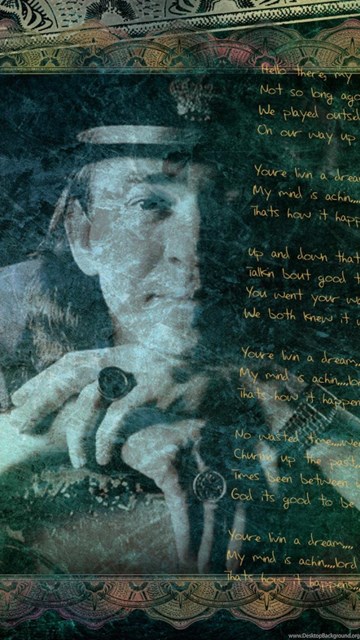 Hello there, my
Not so long ago
We played outsid
On our way up
You're livin a drea
My mind is achin,,,,
Thats how it happ
Up and down that
Talkin bout good t
You went your w
We both knew it
You're livin a dream,,,
My mind is achin,,,,lo
Thats how it happen
No wasted time,,,,
Churns up the past
Times been between
God its good to be
You're livin a dream,,,,
My mind is achin,,,,lord
Thats how it happens
www.DesktopBackground.org